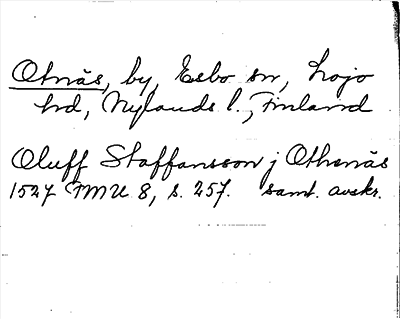 Otnäs, by, Esbo sn, Lojo
hd, Nylands l., Finland
Oluff Staffansson j Othenäs
1527 FMU 8, s. 257. samt. avskr.